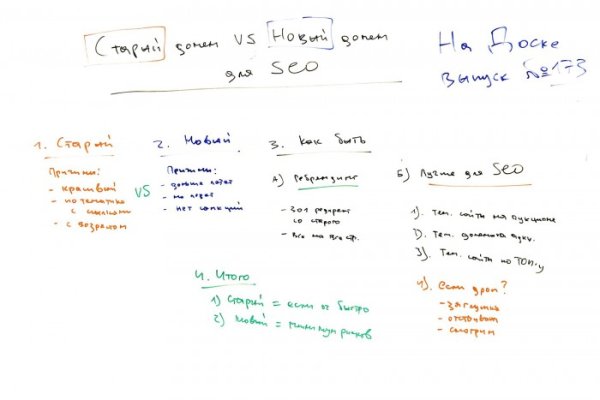 Старый домен VS Новый домен
для SEO
На Доске
выпуск №173
1. Старый
Причины:
- красивый
- по тематике
с ссылками
- с возрастом
VS
2. Новый
Причины:
- дольше
- нет санкций
3. Как быть
А) Ребрендинг
- 301 редирект
со старого
- Все на все стр.
Б) Лучше для SEO
1). Тем. сайты на аукционе
2). Тем. домена аукц.
3). Тем. сайты по ТОП-у
4). Если дроп?
- заглушка
- отстойник
- смотрим
4. Итого
1) Старый = если оч быстро
2) Новый = минимум рисков